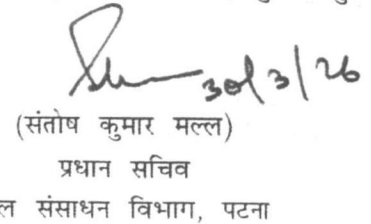 30/3/26
(संतोष कुमार मल्ल)
प्रधान सचिव
संसाधन विभाग, पटना